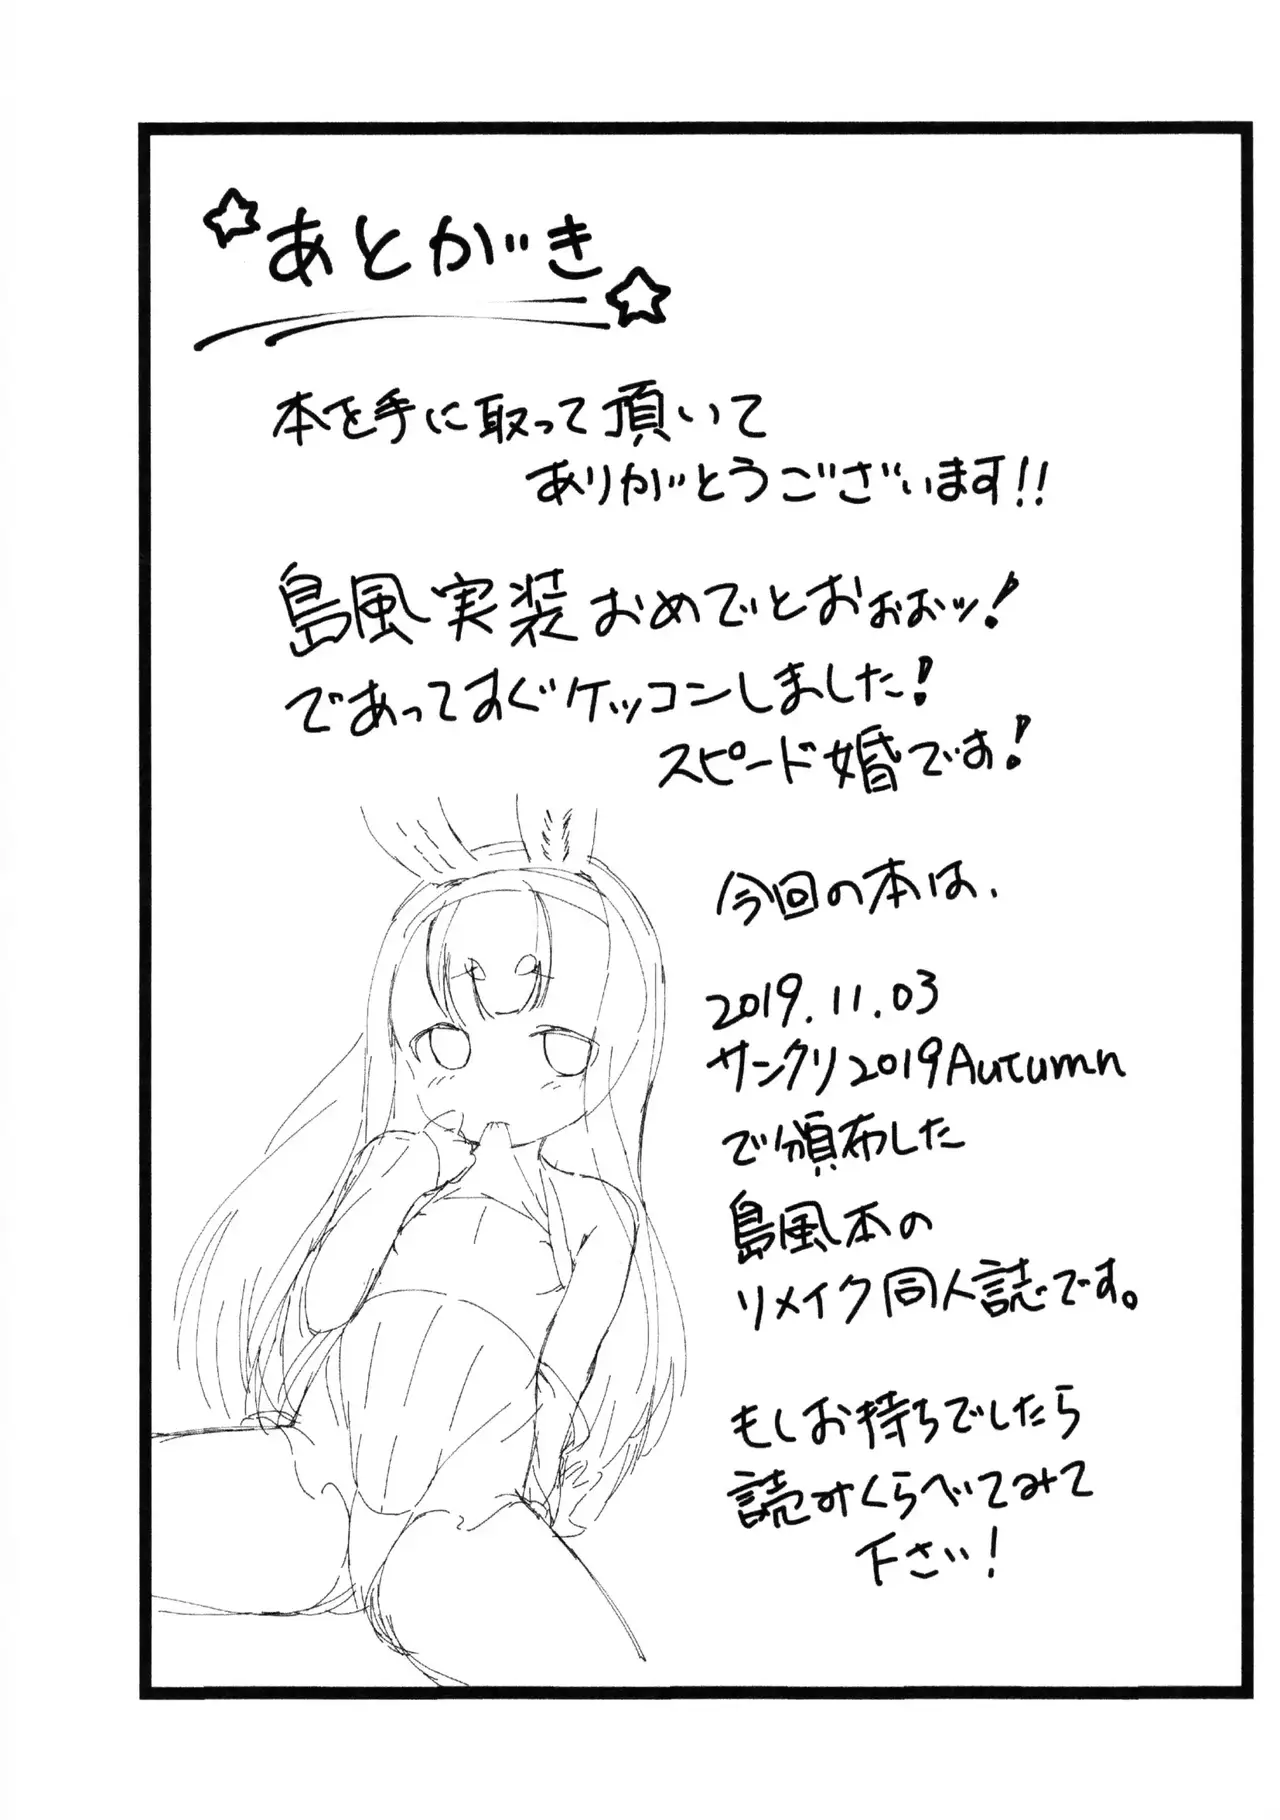 あとがき
本を手に取って頂いて
ありがとうございます!!
島風実装おめでとおぉおッ!
であってすぐケッコンしました!
スピード婚です!
今回の本は、
2019.11.03
サンクリ2019Autumn
で頒布した
島風本の
リメイク同人誌です。
もしお持ちでしたら
読みくらべてみて
下さい!